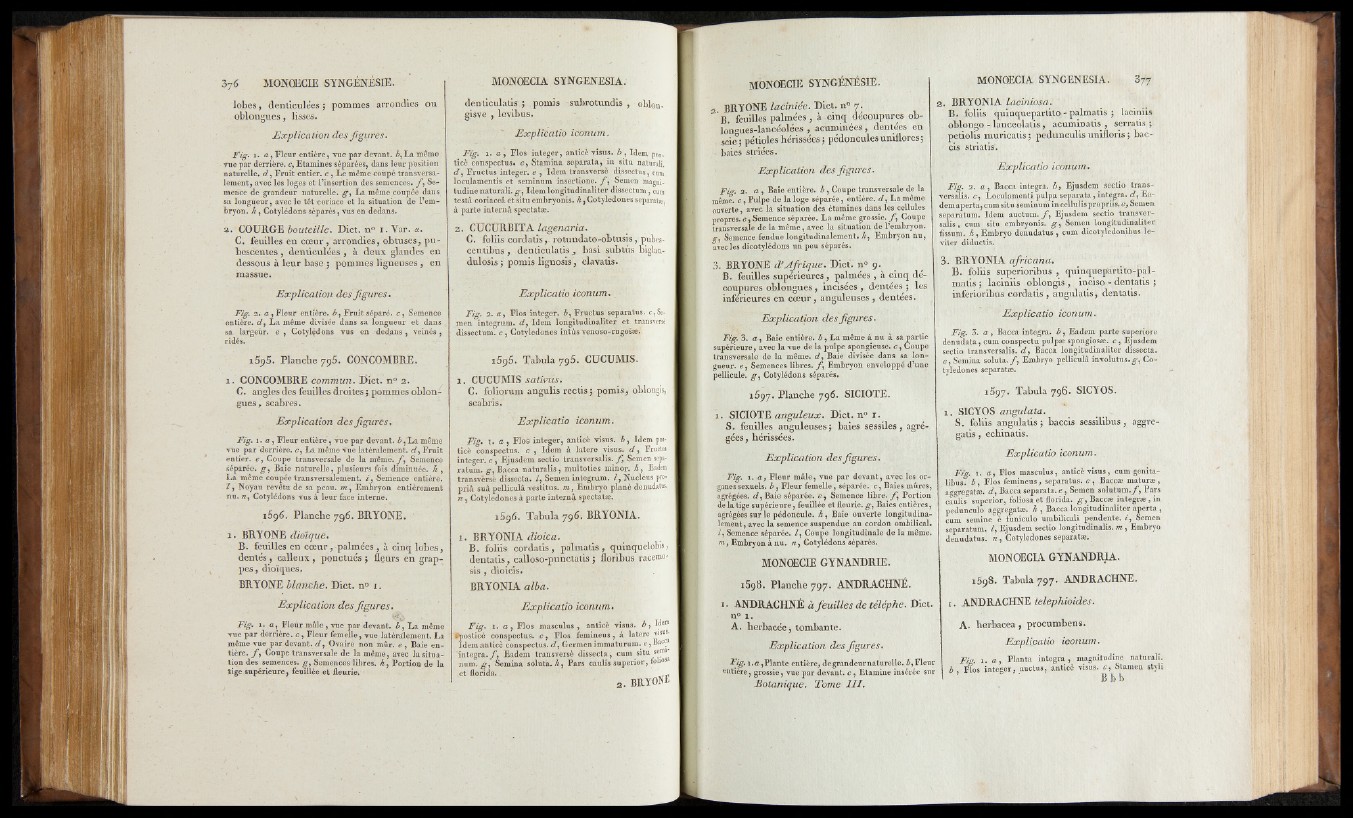 376 MONŒCIE SYNGÉNÉSIE.
lobes, denticulées ; pommes arrondies ou
oblongues, lisses.
Explication des figures.
Fig. 1. a, Fleur entière, vue par devant. b, La même
vue par derrière. c, Etamines séparées, dans leur position
naturelle. d, Fruit entier. e, Le même coupé transversa-
lement, avec les loges et l'insertion des semences. f, Se-
mence de grandeur naturelle. g, La même coupée dans
sa longueur, avec le têt coriace et la situation de l'em-
bryon. h, Cotylédons séparés, vus en dedans.
2. COURGE bouteille. Dict. n° 1. Var. α.
C. feuilles en cœur, arrondies, obtuses, pu-
bescentes, denticulées, à deux glandes en
dessous à leur base ; pommes ligneuses, en
massue.
Explication des figures.
Fig. 2. a, Fleur entière. b, Fruit séparé. c, Semence
entière. d, La même divisée dans sa longueur et dans
sa largeur. e, Cotylédons vus en dedans, veinés,
ridés.
1595. Planche 795. CONCOMBRE.
1. CONCOMBRE commun. Dict. n° 2.
C. angles des feuilles droites ; pommes oblon-
gues, scabres.
Explication des figures.
Fig. 1. a, Fleur entière, vue par devant. b, La même
vue par derrière. c, La même vue latéralement. d, Fruit
entier. e, Coupe transversale de la même. f, Semence
séparée. g, Baie naturelle, plusieurs fois diminuée. h,
La même coupée transversalement. i, Semence entière.
l, Noyau revêtu de sa peau. m, Embryon entièrement
nu. n, Cotylédons vus à leur face interne.
1596. Planche 796. BRYONE.
1. BRYONE dioïque.
B. feuilles en cœur, palmées, à cinq lobes,
dentés, calleux, ponctués ; fleurs en grap-
pes, dioïques.
BRYONE blanche. Dict. n° 1.
Explication des figures.
Fig. 1. a, Fleur mâle, vue par devant. b, La même
vue par derrière. c, Fleur femelle, vue latéralement. La
même vue par devant. d, Ovaire non mûr. e, Baie en-
tière. f, Coupe transversale de la même, avec la situa-
tion des semences. g, Semences libres. h, Portion de la
tige supérieure, feuillée et fleurie.
MONŒCIA SYNGENESIA.
denticulatis ; pomis subrotundis, oblon-
gisve, levibus.
Explicatio iconum.
Fig. 1. a, Flos integer, anticè visus. b, Idem, pos-
ticè conspectus. c, Stamina separata, in situ naturali.
d, Fructus integer. e, Idem transversè dissectus, cum
loculamentis et seminum insertione. f, Semen magni-
tudine naturali. g, Idem longitudinaliter dissectum, cum
testâ coriaceâ et situ embryonis. h, Cotyledones separatæ,
à parte internâ spectatæ.
2. CUCURBITA lagenaria.
C. foliis cordatis, rotundato-obtusis, pubes-
centibus, denticulatis, basi subtùs biglan-
dulosis ; pomis lignosis, clavatis.
Explicatio iconum.
Fig. 2. a, Flos integer. b, Fructus separatus. c, Se-
men integrum. d, Idem longitudinaliter et transversè
dissectum. e, Cotyledones intùs venoso-rugosæ.
1595. Tabula 795. CUCUMIS.
1. CUCUMIS sativus.
C. foliorum angulis rectis ; pomis, oblongis,
scabris.
Explicatio iconum.
Fig. 1. a, Flos integer, anticè visus. b, Idem pos-
ticè conspectus. c, Idem à latere visus. d, Fructus
integer. e, Ejusdem sectio transversalis. f, Semen sepa-
ratum. g, Bacca naturalis, multoties minor. h, Eadem
transversè dissecta. i, Semen integrum. l, Nucleus pro-
priâ suâ pelliculâ vestitus. m, Embryo planè denudatus.
n, Cotyledones à parte internâ spectatæ.
1596. Tabula 796. BRYONIA.
1. BRYONIA dioica.
B. foliis cordatis, palmatis, quinquelobis,
dentatis, calloso-punctatis ; floribus racemo-
sis, dioicis.
BRYONIA alba.
Explicatio iconum.
Fig. 1. a, Flos masculus, anticè visus. b, Idem
posticè conspectus. c, Flos femineus, à latere visus.
Idem anticè conspectus. d, Germen immaturum. e, Bacca
integra. f, Eadem transversè dissecta, cum situ semi-
num. g, Semina soluta. h, Pars caulis superior, foliosa
et florida.
2. BRYONE
MONŒCIE SYNGÉNÉSIE.
2. BRYONE laciniée. Dict. n° 7.
B. feuilles palmées, à cinq découpures ob-
longues-lancéolées, acuminées, dentées en
scie ; pétioles hérissées ; pédoncules uniflores ;
baies striées.
Explication des figures.
Fig. 2. a, Baie entière. b, Coupe transversale de la
même. c, Pulpe de la loge séparée, entière. d, La même
ouverte, avec la situation des étamines dans les cellules
propres. e, Semence séparée. La même grossie. f, Coupe
transversale de la même, avec la situation de l'embryon.
g, Semence fendue longitudinalement. h, Embryon nu,
avec les dicotylédons un peu séparés.
3. BRYONE d'Afrique. Dict. n° 9.
B. feuilles supérieures, palmées, à cinq dé-
coupures oblongues, incisées, dentées ; les
inférieures en cœur, anguleuses, dentées.
Explication des figures.
Fig. 3. a, Baie entière. b, La même à nu à sa partie
supérieure, avec la vue de la pulpe spongieuse. c, Coupe
transversale de la même. d, Baie divisée dans sa lon-
gueur. e, Semences libres. f, Embryon enveloppé d'une
pellicule. g, Cotylédons séparés.
1597. Planche 796. SICIOTE.
1. SICIOTE anguleux. Dict. n° 1.
S. feuilles anguleuses ; baies sessiles, agré-
gées, hérissées.
Explication des figures.
Fig. 1. a, Fleur mâle, vue par devant, avec les or-
ganes sexuels. b, Fleur femelle, séparée. c, Baies mûres,
agrégées. d, Baie séparée. e, Semence libre. f, Portion
de la tige supérieure, feuillée et fleurie. g, Baies entières,
agrégées sur le pédoncule. h, Baie ouverte longitudina-
lement, avec la semence suspendue au cordon ombilical.
i, Semence séparée. l, Coupe longitudinale de la même.
m, Embryon à nu. n, Cotylédons séparés.
MONŒCIE GYNANDRIE.
1598. Planche 797. ANDRACHNÉ.
1. ANDRACHNÉ à feuilles de télèphe. Dict.
n° 1.
A. herbacée, tombante.
Explication des figures.
Fig. 1. a, Plante entière, de grandeur naturelle. b, Fleur
entière, grossie, vue par devant. c, Etamine insérée sur
Botanique. Tome III.
MONŒCIA SYNGENESIA. 377
2. BRYONIA laciniosa.
B. foliis quinquepartito-palmatis ; laciniis
oblongo-lanceolatis, acuminatis, serratis ;
petiolis muricatis ; pedunculis unifloris ; bac-
cis striatis.
Explicatio iconum.
Fig. 2. a, Bacca integra. b, Ejusdem sectio trans-
versalis. c, Loculamenti pulpa separata, integra. d, Ea-
dem aperta, cum situ seminum in cellulis propriis. e, Semen
separatum. Idem auctum. f, Ejusdem sectio transver-
salis, cum situ embryonis. g, Semen longitudinaliter
fissum. h, Embryo denudatus, cum dicotyledonibus le-
viter diductis.
3. BRYONIA africana.
B. foliis superioribus, quinquepartito-pal-
matis ; laciniis oblongis, inciso-dentatis ;
inferioribus cordatis, angulatis, dentatis.
Explicatio iconum.
Fig. 3. a, Bacca integra. b, Eadem parte superiore
denudata, cum conspectu pulpæ spongiosæ. c, Ejusdem
sectio transversalis. d, Bacca longitudinaliter dissecta.
e, Semina soluta. f, Embryo pelliculâ involutus. g, Co-
tyledones separatæ.
1597. Tabula 796. SICYOS.
1. SICYOS angulata.
S. foliis angulatis ; baccis sessilibus, aggre-
gatis, echinatis.
Explicatio iconum.
Fig. 1. a, Flos masculus, anticè visus, cum genita-
libus. b, Flos femineus, separatus. c, Baccæ maturæ,
aggregatæ. d, Bacca separata. e, Semen solutum. f, Pars
caulis superior, foliosa et florida. g, Baccæ integræ, in
pedunculo aggregatæ. h, Bacca longitudinaliter aperta,
cum semine è funiculo umbilicali pendente. i, Semen
separatum. l, Ejusdem sectio longitudinalis. m, Embryo
denudatus. n, Cotyledones separatæ.
MONŒCIA GYNANDRIA.
1598. Tabula 797. ANDRACHNE.
1. ANDRACHNE telephioides.
A. herbacea, procumbens.
Explicatio iconum.
Fig. 1. a, Planta integra, magnitudine naturali.
b, Flos integer, auctus, anticè visus. c, Stamen styli
Bbb